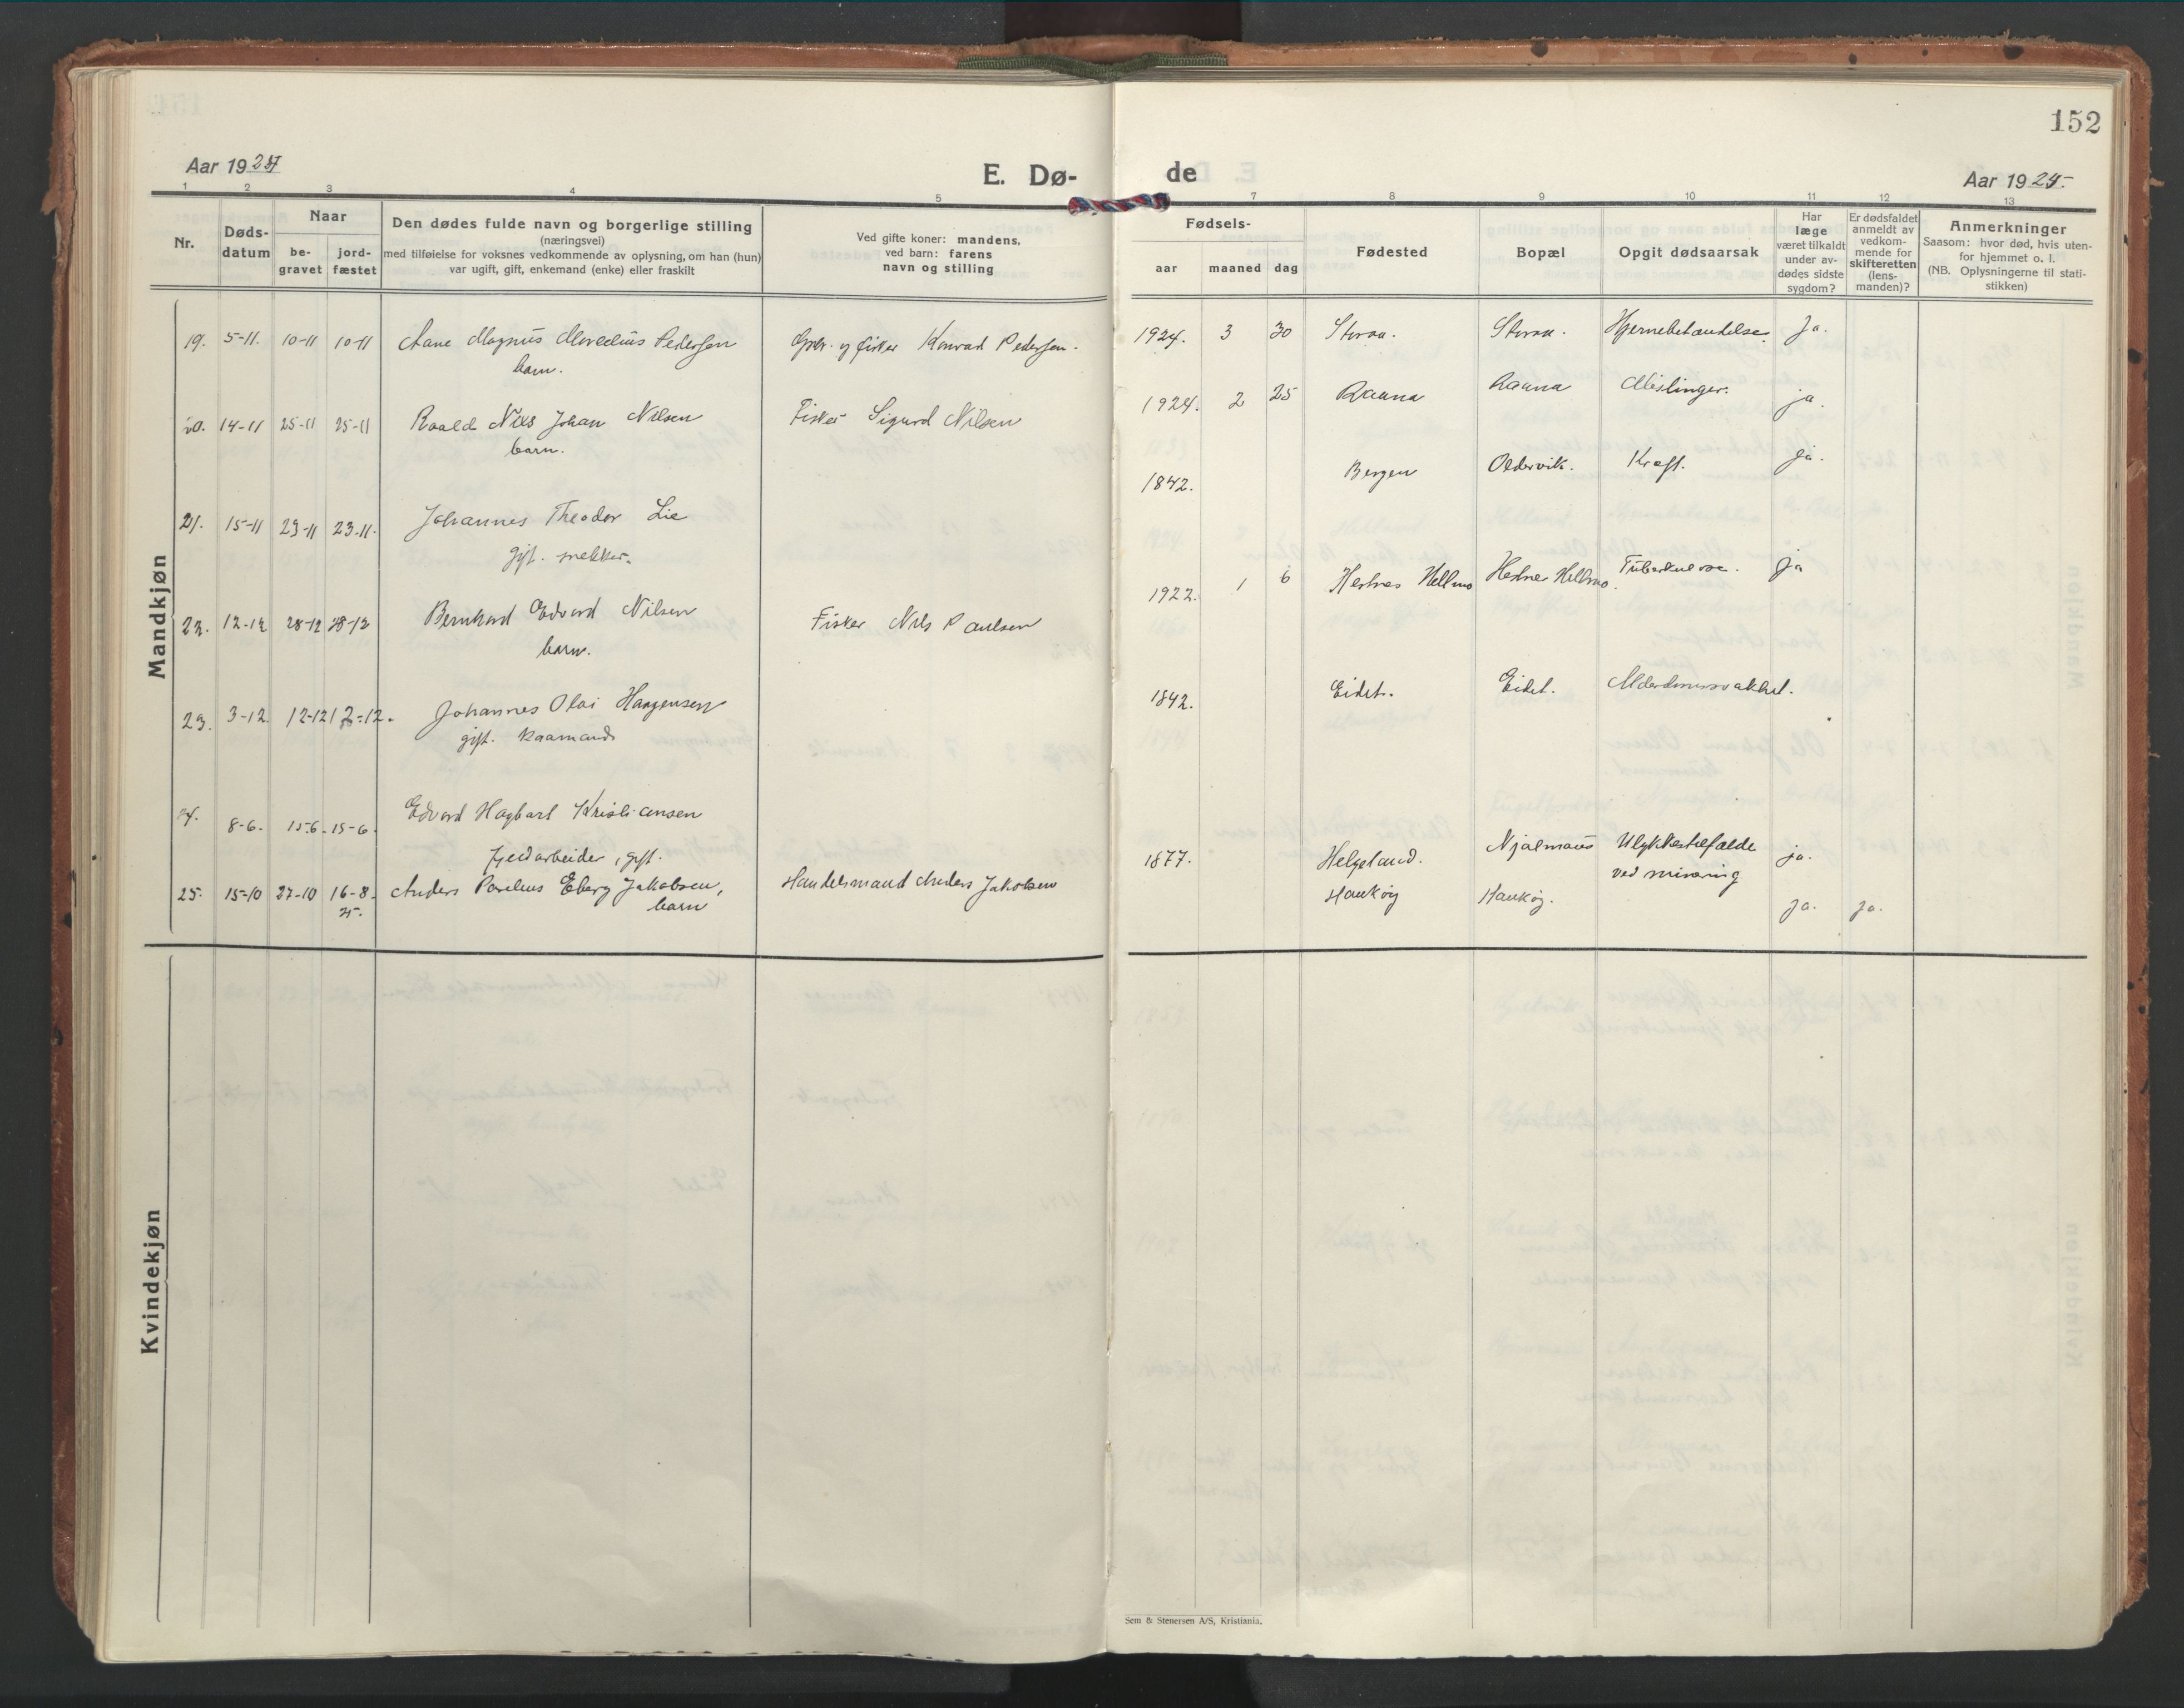 152
Aar 1924
E. Dø-
de
Aar 1924.
1 2 3 4 5 7 8 9 10 11 12 13
Nr.
Døds-
datum
Naar
be-
gravet
jord-
fæstet
Den dødes fulde navn og borgerlige stilling
(næringsvei)
med tilføielse for voksnes vedkommende av oplysning, om han (hun)
var ugift, gift, enkemand (enke) eller fraskilt
Ved gifte koner: mandens,
ved barn: farens
navn og stilling
Fødsels-
aar maaned dag
Fødested
Bopæl
Opgit dødsaarsak
Har
læge
været tilkaldt
under av-
dødes sidste
sygdom?
Er dødsfaldet
anmeldt av
vedkom-
mende for
skifteretten
(lens-
manden)?
Anmerkninger
Saasom: hvor død, hvis uten-
for hjemmet o. l.
(NB. Oplysningerne til stati-
stikken)
Mandkjøn
19. 5-11. 10-11 10-11 Magnus Pedersen og fisker Konrad Pedersen. 1924. 3 30 Storaa. Storaa. Ja.
barn.
20. 14-11 25-11 25-11 Roald Nils Johan Nilsen Fisker Sigurd Nilsen 1924. 2 25 Raana Raana Meslinger. ja.
barn.
21. 15-11 23-11 23-11. Johannes Theodor Lie 1842. Bergen Oldervik. Kræft. Ja.
gift.
22. 12-12 28-12 28-12 Bernhard Edvard Nilsen Fisker Nils Paulsen 1922. 1 6 Hestnes Hellmo Hestnes Hellmo. Tuberkulose. ja
barn.
23. 3-12 12-12 12-12. Johannes Olai Haagensen 1842. Eidet. Eidet. Alderdomssvakhet.
gift. kaarmand
24. 8-6. 15-6. 15-6. Edvard Hagbart Kristiansen
arbeider, gift. 1877. Helgeland. Ulykkestilfælde ja.
ved minering
25. 15-10 27-10 16-8. Anders Eberg Jakobsen, Handelsmand Anders Jakobsen Haukøy Haukøy. ja. ja.
25. barn
Kvindekjøn
Sem & Stenersen A/S, Kristiania.